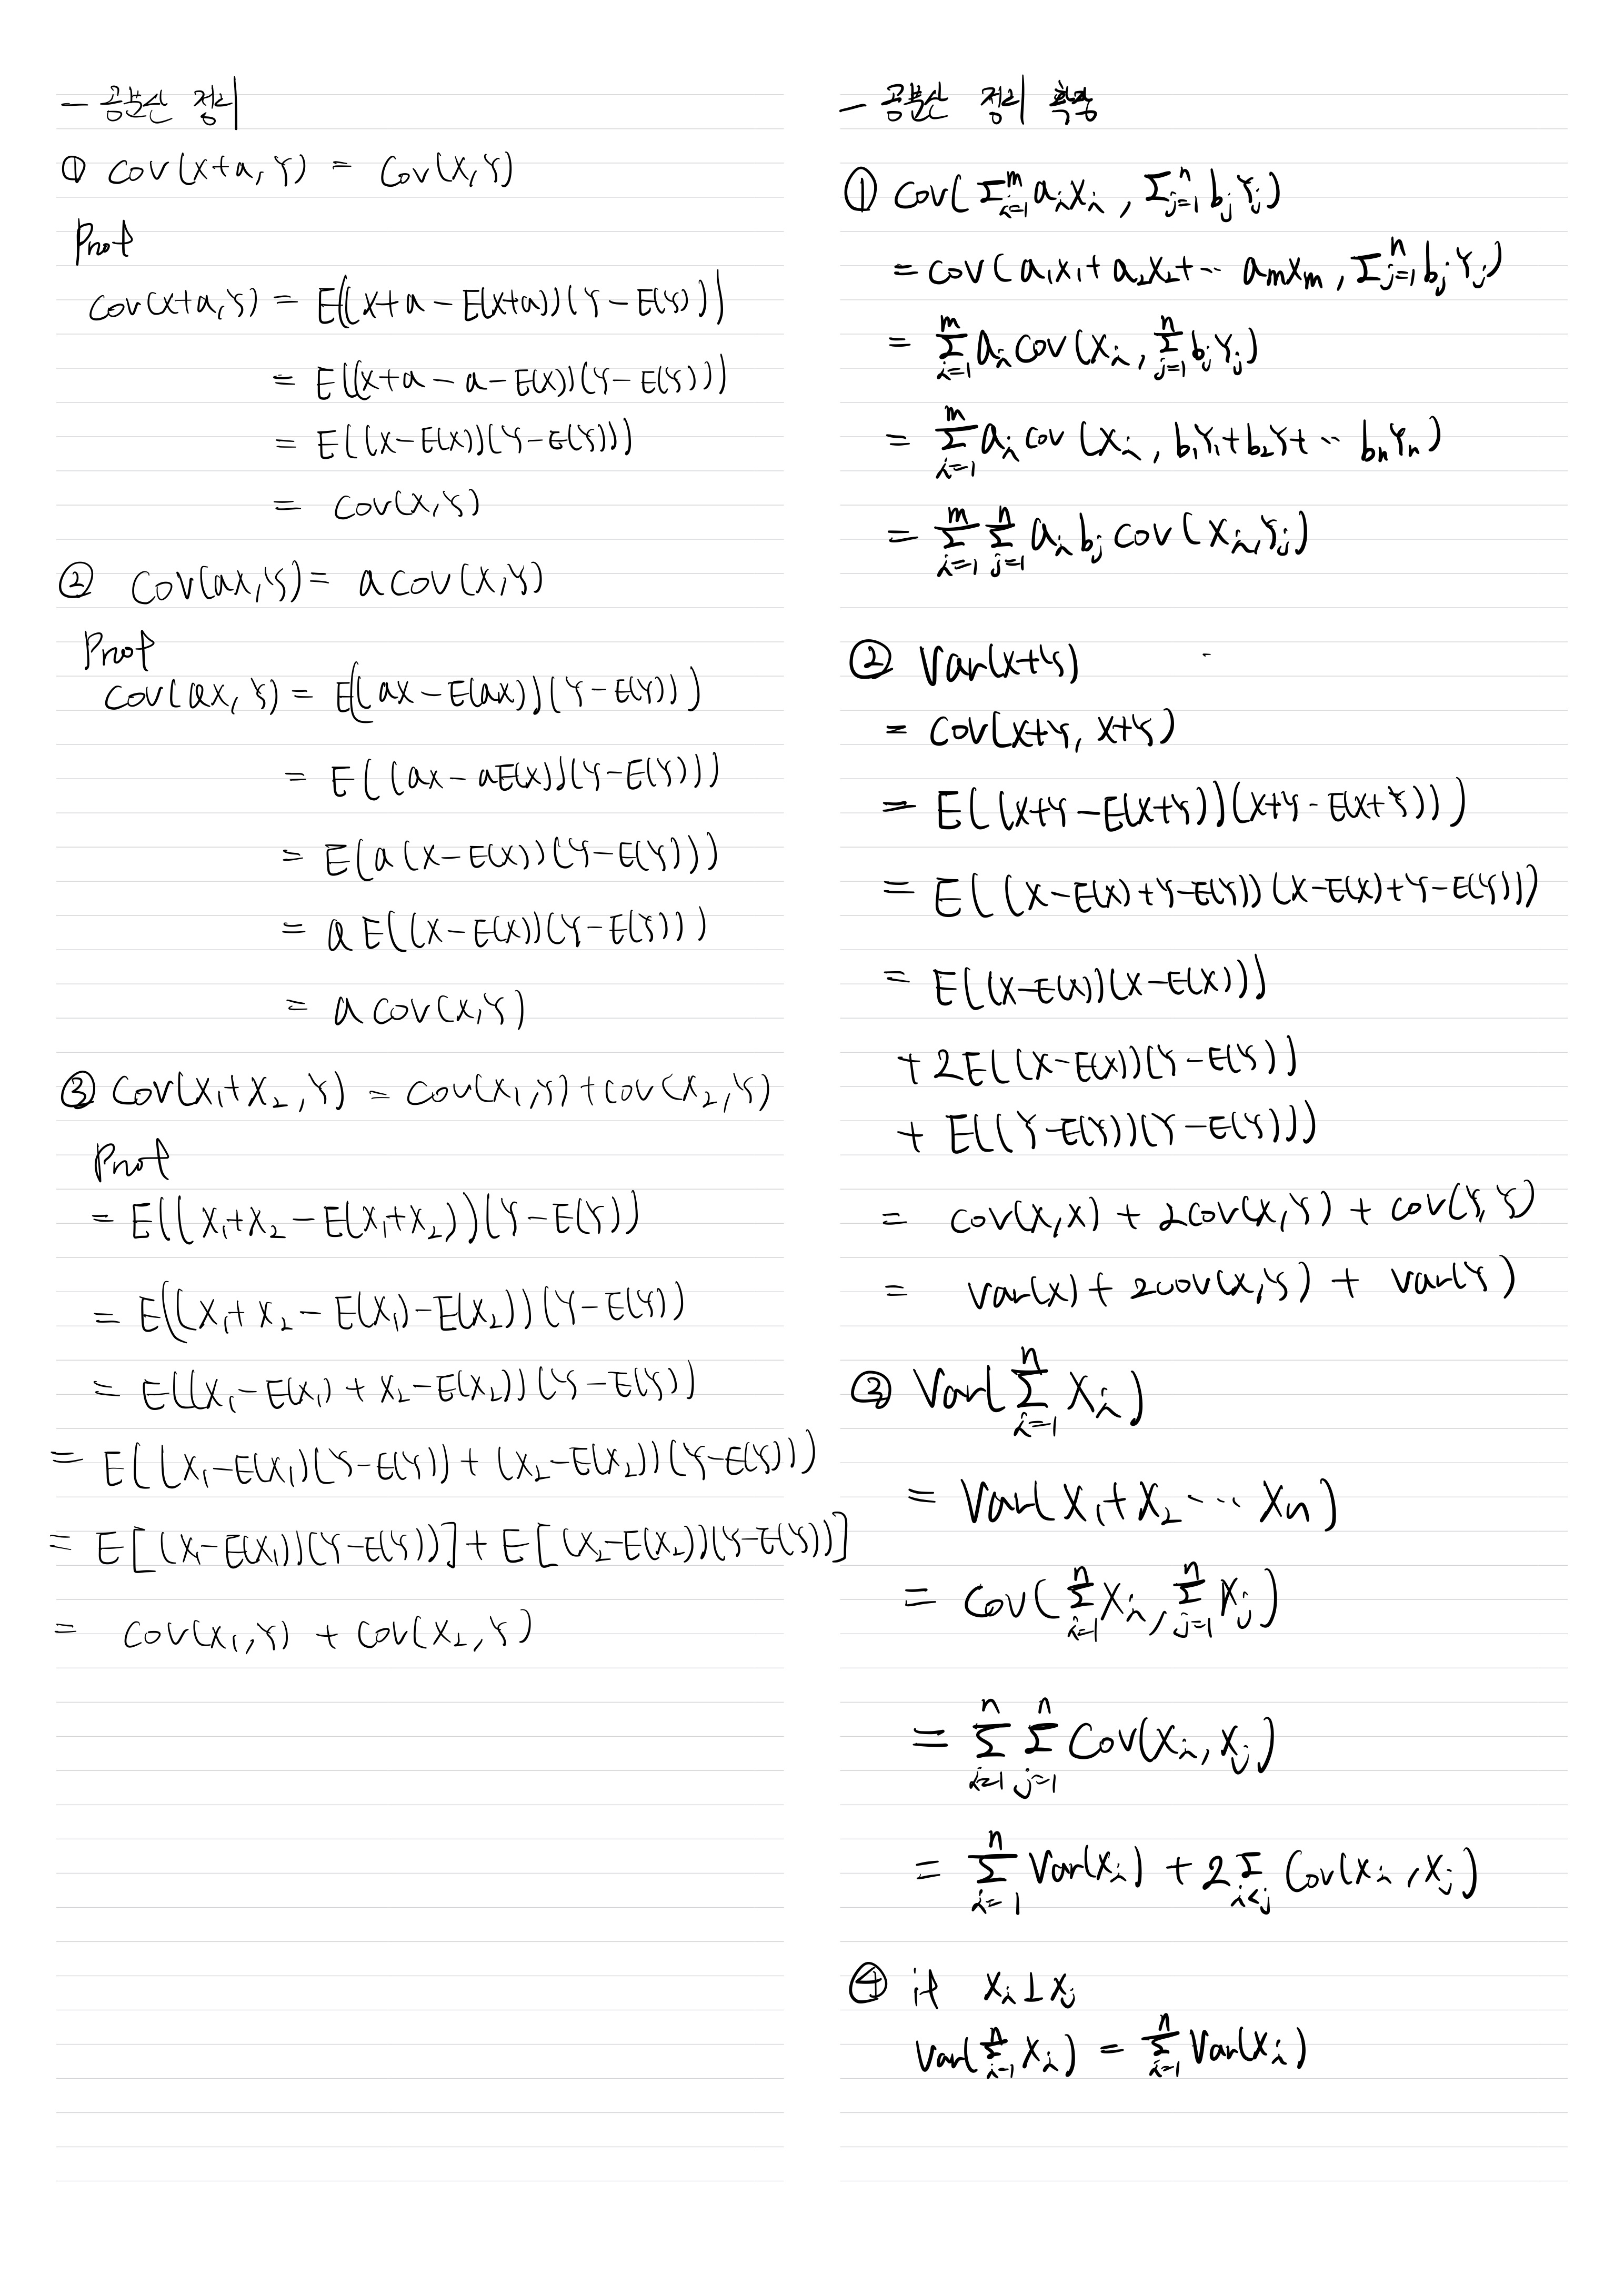 - 공분산 정리
① Cov(X+a, Y) = Cov(X,Y)
Proof
Cov(X+a,Y) = E((X+a - E(X+a))(Y - E(Y)))
= E((X+a - a - E(X))(Y - E(Y)))
= E((X-E(X))(Y-E(Y)))
= Cov(X,Y)
② Cov(aX,Y) = a Cov(X,Y)
Proof
Cov(aX, Y) = E((aX - E(aX))(Y - E(Y)))
= E((aX - aE(X))(Y-E(Y)))
= E(a(X-E(X))(Y-E(Y)))
= a E((X-E(X))(Y-E(Y)))
= a Cov(X,Y)
③ Cov(X₁+X₂,Y) = Cov(X₁,Y)+Cov(X₂,Y)
Proof
= E((X₁+X₂ - E(X₁+X₂))(Y-E(Y))
= E((X₁+X₂ - E(X₁)-E(X₂))(Y-E(Y))
= E((X₁-E(X₁) + X₂-E(X₂))(Y-E(Y))
= E((X₁-E(X₁)(Y-E(Y)) + (X₂-E(X₂))(Y-E(Y)))
= E[(X₁-E(X₁))(Y-E(Y))] + E[(X₂-E(X₂))(Y-E(Y))]
= Cov(X₁,Y) + Cov(X₂,Y)
- 공분산 정리
① Cov(Σᵢ₌₁ᵐ aᵢXᵢ, Σⱼ₌₁ⁿ bⱼYⱼ)
= Cov(a₁X₁+a₂X₂+··· aₘXₘ, Σⱼ₌₁ⁿ bⱼYⱼ)
= Σᵢ₌₁ᵐ aᵢ Cov(Xᵢ, Σⱼ₌₁ⁿ bⱼYⱼ)
= Σᵢ₌₁ᵐ aᵢ Cov(Xᵢ, b₁Y₁+b₂Y+··· bₙYₙ)
= Σᵢ₌₁ᵐ Σⱼ₌₁ⁿ aᵢbⱼ Cov(Xᵢ,Yⱼ)
② Var(X+Y)
= Cov(X+Y, X+Y)
= E((X+Y-E(X+Y))(X+Y-E(X+Y)))
= E((X-E(X)+Y-E(Y))(X-E(X)+Y-E(Y)))
= E((X-E(X))(X-E(X)))
+ 2E((X-E(X))(Y-E(Y))
+ E((Y-E(Y))(Y-E(Y)))
= Cov(X,X) + 2Cov(X,Y) + Cov(Y,Y)
= Var(X) + 2Cov(X,Y) + Var(Y)
③ Var(Σᵢ₌₁ⁿ Xᵢ)
= Var(X₁+X₂ ··· Xₙ)
= Cov(Σᵢ₌₁ⁿ Xᵢ, Σⱼ₌₁ⁿ Xⱼ)
= Σᵢ₌₁ⁿ Σⱼ₌₁ⁿ Cov(Xᵢ,Xⱼ)
= Σᵢ₌₁ⁿ Var(Xᵢ) + 2Σ_{i<j} Cov(Xᵢ,Xⱼ)
④ if Xᵢ⊥Xⱼ
Var(Σᵢ₌₁ⁿ Xᵢ) = Σᵢ₌₁ⁿ Var(Xᵢ)